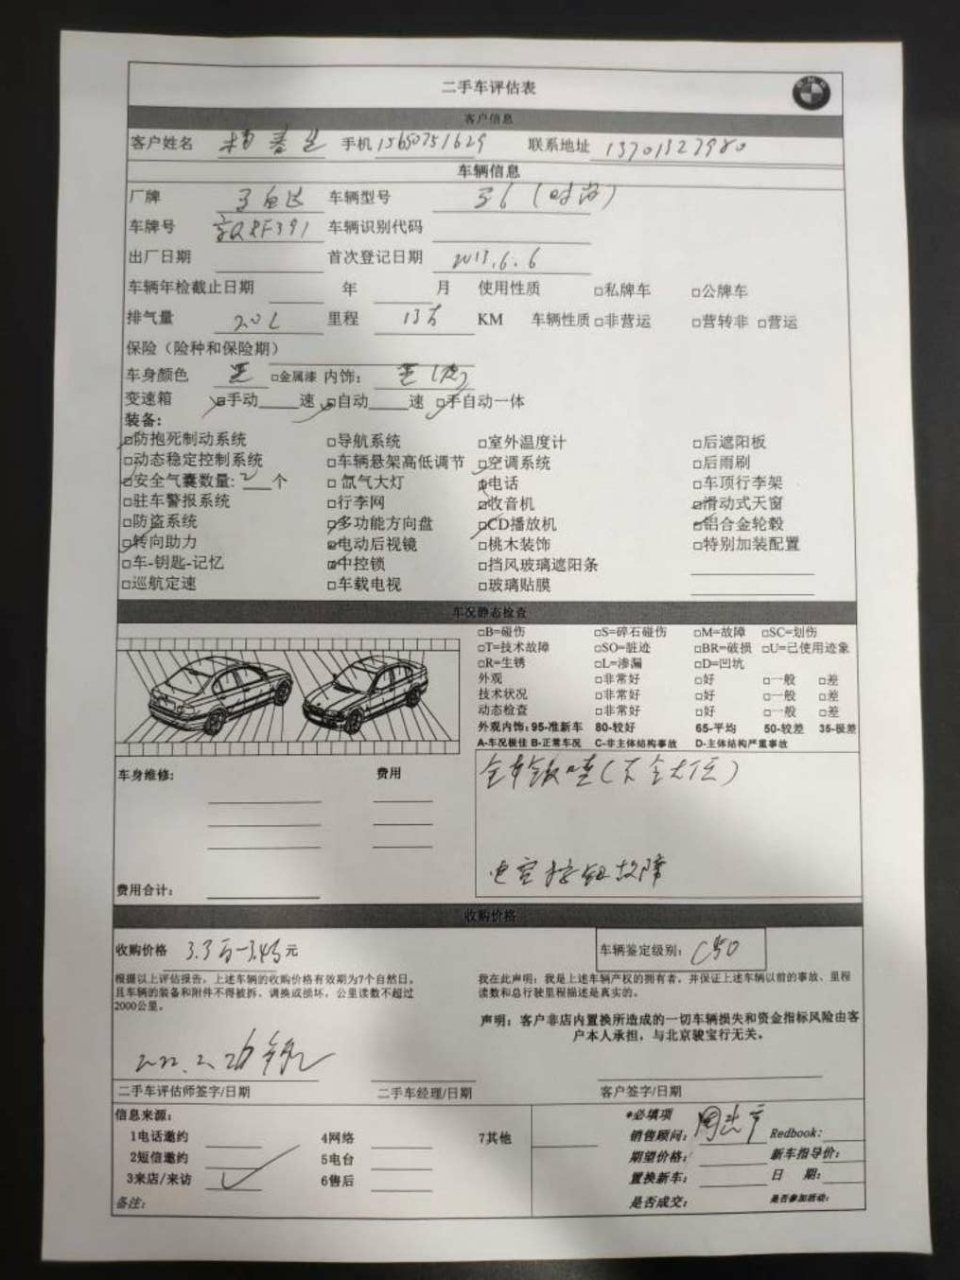 二手车评估表
客户信息
客户姓名 手机 15650751629 联系地址 13701327980
车辆信息
厂牌 马自达 车辆型号 马6(时尚)
车牌号 车辆识别代码
出厂日期 首次登记日期 2013.6.6
车辆年检截止日期 年 月 使用性质 □私牌车 □公牌车
排气量 2.0L 里程 13万 KM 车辆性质 □非营运 □营转非 □营运
保险(险种和保险期)
车身颜色 黑 □金属漆 内饰: 黑
变速箱 □手动 速 □自动 速 □手自动一体
装备:
□防抱死制动系统 □导航系统 □室外温度计 □后遮阳板
□动态稳定控制系统 □车辆悬架高低调节 □空调系统 □后雨刷
□安全气囊数量: 2 个 □氙气大灯 □电话 □车顶行李架
□驻车警报系统 □行李网 □收音机 □滑动式天窗
□防盗系统 □多功能方向盘 □CD播放机 □铝合金轮毂
□转向助力 □电动后视镜 □桃木装饰 □特别加装配置
□车-钥匙-记忆 □中控锁 □挡风玻璃遮阳条
□巡航定速 □车载电视 □玻璃贴膜
车况静态检查
□B=碰伤 □S=碎石碰伤 □M=故障 □SC=划伤
□T=技术故障 □SO=脏迹 □BR=破损 □U=已使用迹象
□R=生锈 □L=渗漏 □D=凹坑
外观 □非常好 □好 □一般 □差
技术状况 □非常好 □好 □一般 □差
动态检查 □非常好 □好 □一般 □差
外观内饰: 95-准新车 80-较好 65-平均 50-较差 35-极差
A-车况极佳 B-正常车况 C-非主体结构事故 D-主体结构严重事故
车身维修: 费用
全车钣喷
故障
费用合计:
收购价格
收购价格 3.3万-3.4万元 车辆鉴定级别: C50
根据以上评估报告,上述车辆的收购价格有效期为7个自然日,
且车辆的装备和附件不得被拆、调换或损坏,公里读数不超过
2000公里。
我在此声明:我是上述车辆产权的拥有者,并保证上述车辆以前的事故、里程
读数和总行驶里程描述是真实的。
声明:客户非店内置换所造成的一切车辆损失和资金指标风险由客
户本人承担,与北京骏宝行无关。
2022.2.26
二手车评估师签字/日期 二手车经理/日期 客户签字/日期
信息来源: *必填项
1电话邀约 4网络 7其他 销售顾问: Redbook:
2短信邀约 5电台 期望价格: 新车指导价:
3来店/来访 6售后 置换新车: 日 期:
备注: 是否成交: 是否参加活动: